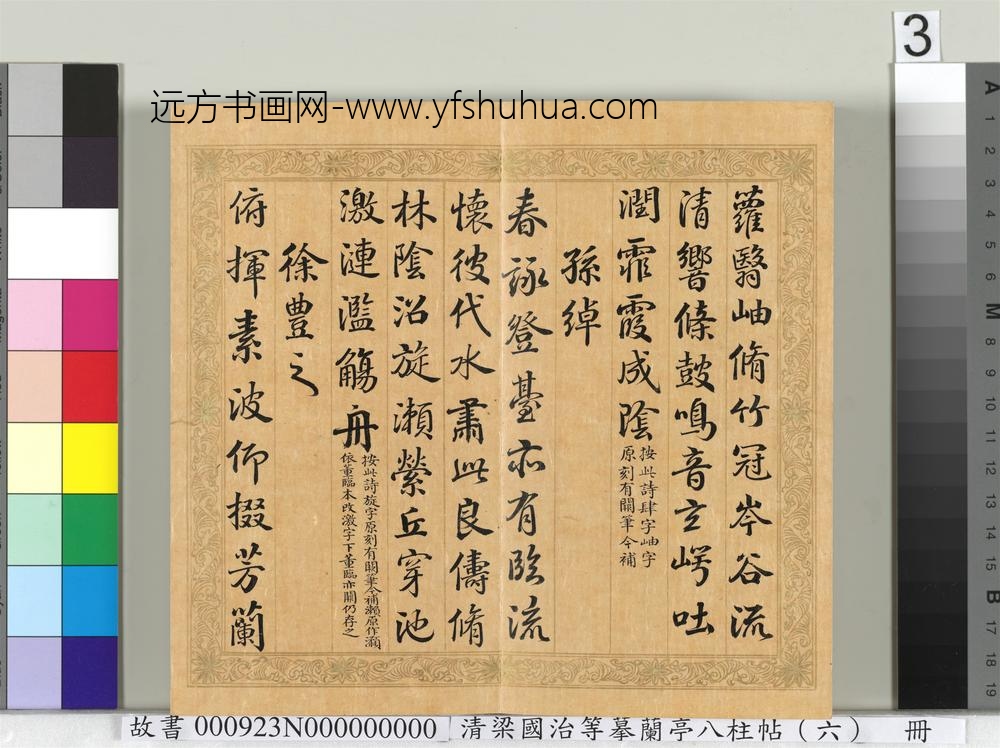 3
远方书画网-www.yfshuhua.com
蘿翳岫脩竹冠岑谷流
清響條鼓鳴音玄崿吐
潤霏霞成陰
按此詩肆字岫字
原刻有闕筆今補
孫綽
春詠登臺亦有臨流
懷彼代水肅此良儔脩
林陰沼旋瀨縈丘穿池
激漣濫觴舟
按此詩旋字原刻有闕筆今補瀨原作瀬
依董臨本改激字下董臨亦闕仍存之
徐豊之
俯揮素波仰掇芳蘭
故書 000923N000000000 清梁國治等摹蘭亭八柱帖（六） 冊
A 1 2 3 4 5 6 M 8 9 10 11 12 13 14 15 B 17 18 19